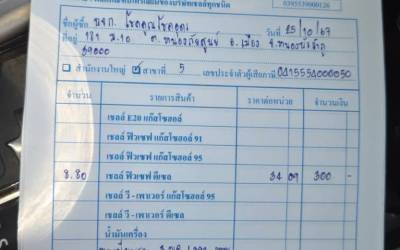 0395539000126
ชื่อผู้ซื้อ หจก. โชคคูณโชคอุดร วันที่ 25/10/67
ที่อยู่ 181 ม.10 ต.หนองภัยศูนย์ อ.เมือง จ.หนองบัวลำภู
39000
สำนักงานใหญ่ ✓ สาขาที่ 5 เลขประจำตัวผู้เสียภาษี 0415554000050
จำนวน รายการสินค้า ราคาต่อหน่วย จำนวนเงิน
เชลล์ E20 แก๊สโซฮอล์
เชลล์ ฟิวเซฟ แก๊สโซฮอล์ 91
เชลล์ ฟิวเซฟ แก๊สโซฮอล์ 95
8.80 เชลล์ ฟิวเซฟ ดีเซล 34 09 300 -
เชลล์ วี - เพาเวอร์ แก๊สโซฮอล์ 95
เชลล์ วี - เพาเวอร์ ดีเซล
น้ำมันเครื่อง